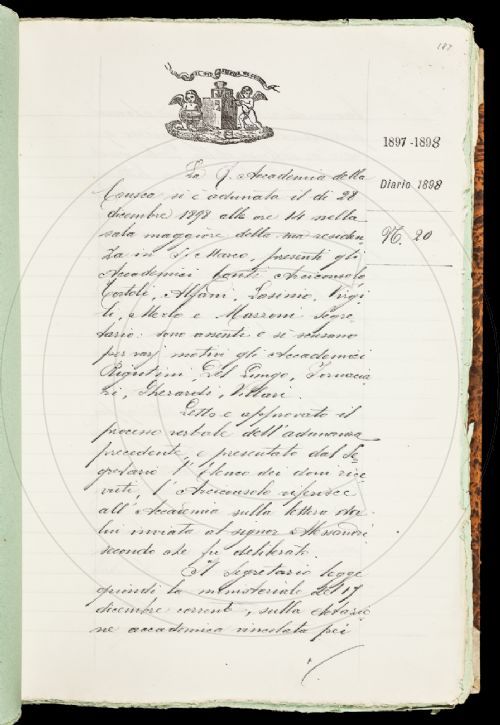 187
1897-1898
Diario 1898
N. 20
La R. Accademia della
Crusca si è adunata il dì 28
dicembre 1898 alle ore 14 nella
sala maggiore della sua residen
za in S. Marco, presenti gli
Accademici Conti Arciconsolo
Tortoli, Alfani, Dazzi, Virgi
li, Merlo e Mazzoni Segre
tario: sono assenti e si scusano
per varj motivi gli Accademici
Rigutini, Del Lungo, Tornacia
ri, Gherardi, Villari.
Letto e approvato il
processo verbale dell'adunanza
precedente, e presentato dal Se
gretario l'elenco dei doni rice
vuti, l'Arciconsolo riferisce
all'Accademia sulla lettera da
lui inviata al signor Alessandri
secondo che fu deliberato.
Il Segretario legge
quindi la memoriale del 17
dicembre corrente, sulla dotazio
ne accademica vincolata pei